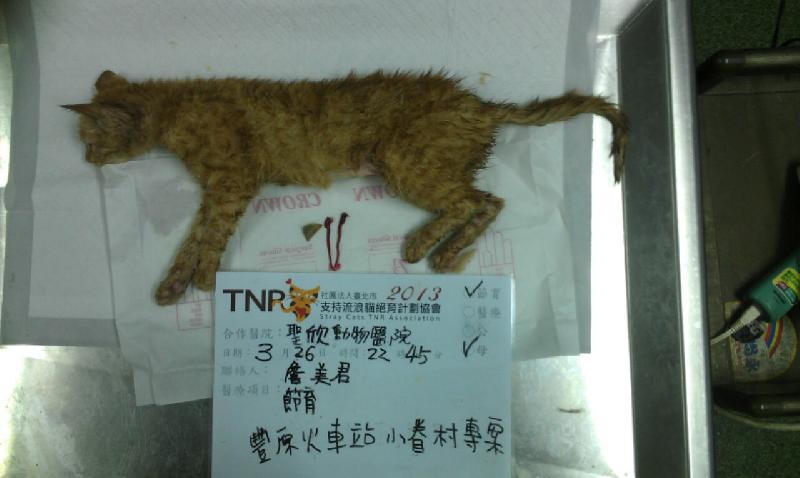 CROWN
CROWN
TNR
社團法人臺北市 2013
支持流浪貓絕育計劃協會
Stray Cats TNR Association
節育
醫療
公
母
合作醫院：聖欣動物醫院
日期：3月26日 時間：22時45分
聯絡人：詹美君
醫療項目：節育
豐原火車站小眷村專案